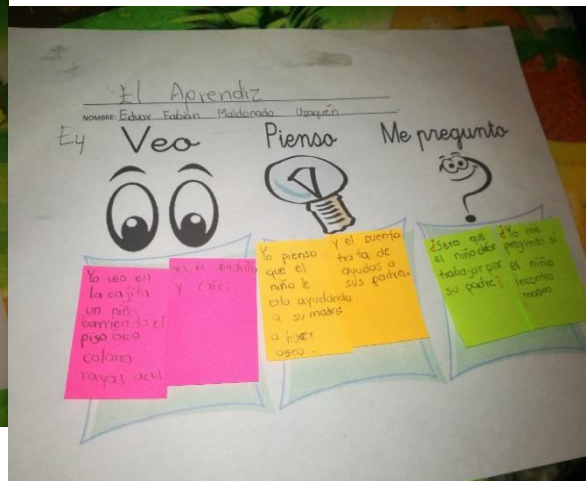 El Aprendiz
NOMBRE: Eduar Fabián Maldonado Usaquén
Ey
Veo
Pienso
Me pregunto
Yo veo en
la cajita
un niño
barriendo el
piso beo
colores
rayas azul
y
Yo pienso
que el
niño le
esta ayudando
a su madre
a hacer
aseo.
y el cuento
trata de
ayudas a
sus padres.
¿Sera que
el niño debe
trabajar por
su padre?
¿Yo me
pregunto si
el niño